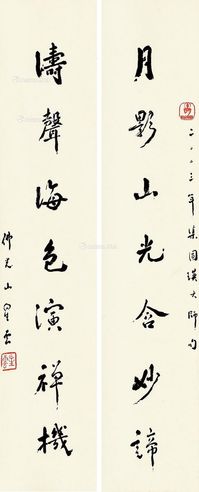 二〇〇三年集圓瑛大師句
月影山光含妙諦
濤聲海色演禪機
佛光山星雲